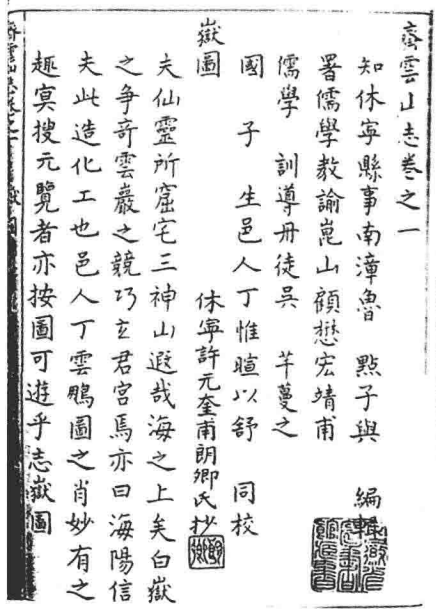 齊雲山志卷之一
知休寧縣事南漳魯　點子與　編輯
署儒學教諭崑山顧懋宏靖甫
儒學　訓導丹徒吳　芊蔓之
國　子　生邑人丁惟暄以舒　同校
休寧許元奎甫朗卿氏抄
嶽圖
夫仙靈所窟宅三神山遐哉海之上矣白嶽
之爭奇雲巖之競巧玄君宮焉亦曰海陽信
夫此造化工也邑人丁雲鵬圖之肖妙有之
趣寘搜元覽者亦按圖可遊乎志嶽圖